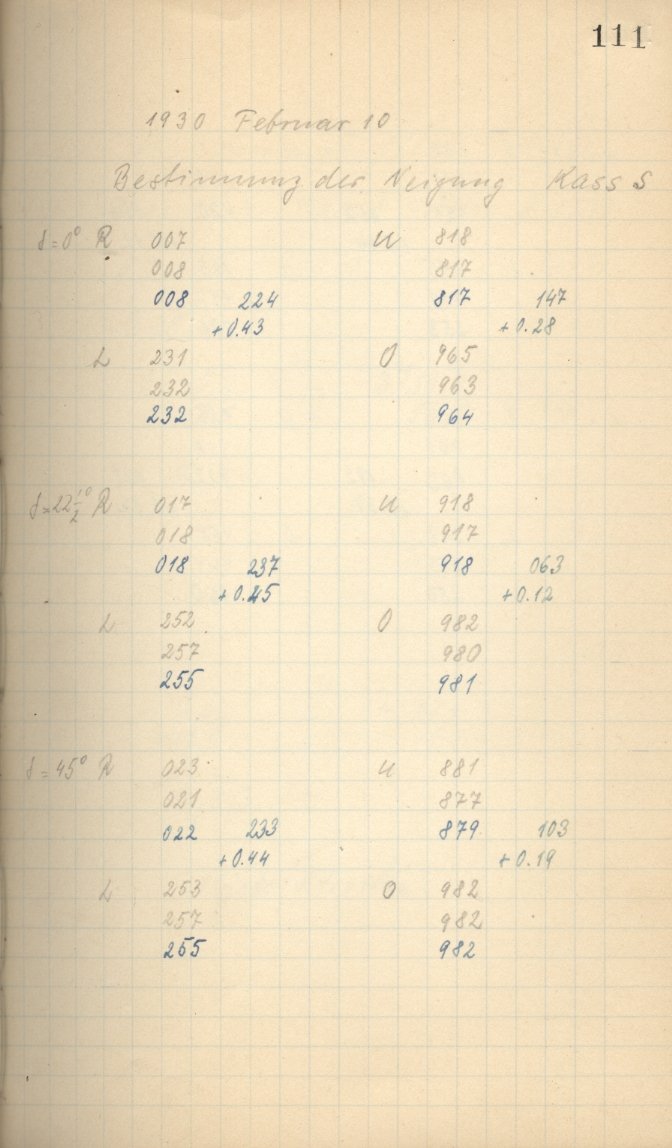 111
1930 Februar 10
Bestimmung der Neigung Kass S
δ=0° R 007 U 818
008 817
008 224 817 147
+0.43 +0.28
L 231 O 965
232 963
232 964
δ=22½° R 017 U 918
018 917
018 237 918 063
+0.45 +0.12
L 252 O 982
257 980
255 981
δ=45° R 023 U 881
021 877
022 233 879 103
+0.44 +0.19
L 253 O 982
257 982
255 982